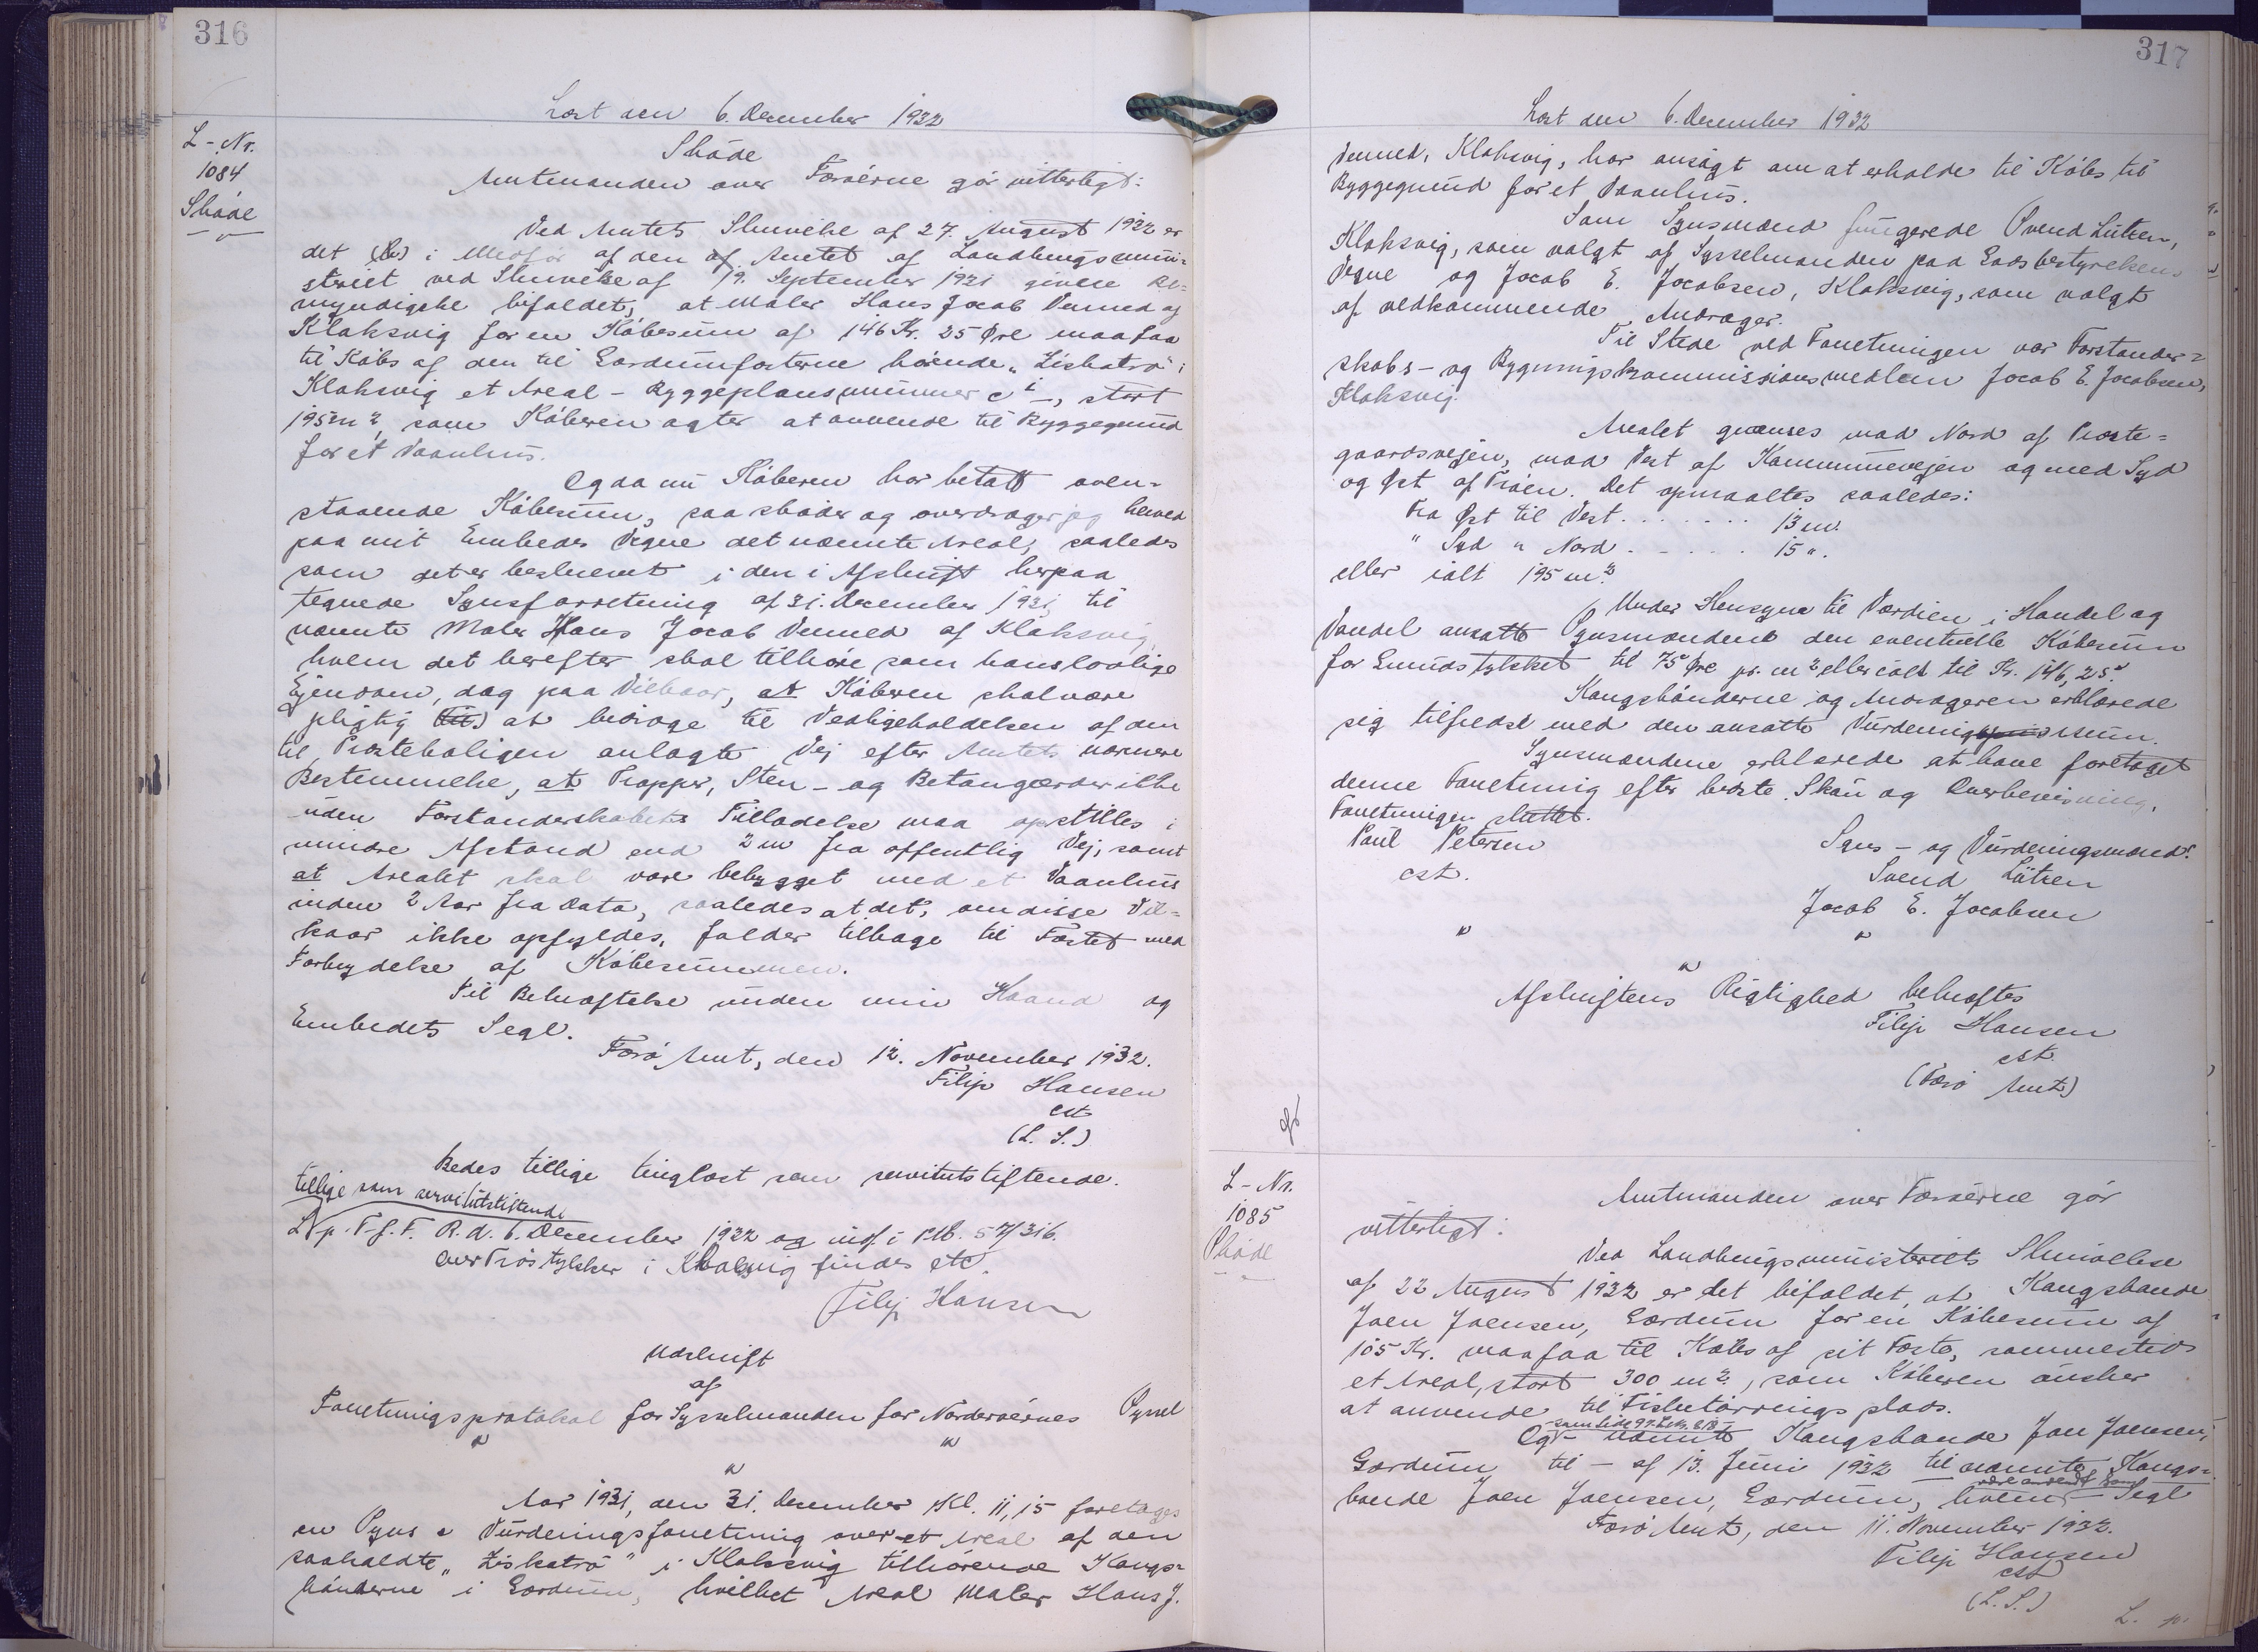 316
Læst den 6. December 1932
L-Nr.
1084
Skøde
Skøde
Amtmanden over Færøerne gør vitterligt:
Ved Amtets Skrivelse af 27. August 1932 er
det i Medfør af den af Amtet af Landbrugsmini-
steriet ved Skrivelse af 19. September 1921 givne Be-
myndigelse bifaldet, at Maler Hans Jacob Debned af
Klaksvig for en Købesum af 146 Kr. 25 Øre maa faa
til Købs af den til Gærdumfæsterne hørende "Liskatrø" i
Klaksvig et Areal - Byggeplansnummer c i -, stort
195 m2, som Køberen agter at anvende til Byggegrund
for et Vaanhus.
Og da nu Køberen har betalt oven-
staaende Købesum, saa skøder og overdrager jeg herved
paa mit Embedes Vegne det nævnte Areal, saaledes
som det er beskrevet i den i Afskrift herpaa
tegnede Synsforretning af 31. December 1931, til
nævnte Maler Hans Jacob Debned af Klaksvig,
hvem det herefter skal tilhøre som hans lovlige
Ejendom, dog paa Vilkaar, at Køberen skal være
pligtig at bidrage til Vedligeholdelsen af den
til Præsteboligen anlagte Vej efter Amtets nærmere
Bestemmelse, at Trapper, Sten- og Betongærder ikke
uden Forstanderskabets Tilladelse maa opstilles i
mindre Afstand end 2 m fra offentlig Vej, samt
at Arealet skal være bebygget med et Vaanhus
inden 2 Aar fra Dato, saaledes at det, om disse Vil-
kaar ikke opfyldes, falder tilbage til Fæstet med
Forbrydelse af Købesummen.
Til Bekræftelse under min Haand og
Embedets Segl.
Færø Amt, den 12. November 1932.
Filip Hansen
cst.
(L. S.)
Bedes tillige tinglæst som servitutstiftende.
tillige som servitutstiftende
L. p. F. f. F. R. d. 6. December 1932 og indf. i Ptb. 57/316.
over Trøstykker i Klaksvig findes etc.
Filip Hansen
Udskrift
af
Forretningsprotokol for Sysselmanden for Norderøernes Syssel
"
"
"
Aar 1931, den 31. December, Kl. 11,15 foretoges
en Syns & Vurderingsforretning over et Areal af den
saakaldte "Liskatrø" i Klaksvig tilhørende Kongs-
bønderne i Gærdum, hvilket Areal Maler Hans J.
317
Læst den 6. December 1932
Debned, Klaksvig, har ansøgt om at erholde til Købs til
Byggegrund for et Vaanhus.
Som Synsmænd fungerede Svend Lützen,
Klaksvig, som valgt af Sysselmanden paa Godsbestyrelsens
Vegne og Jacob E. Jacobsen, Klaksvig, som valgt
af vedkommende Andrager.
Til Stede ved Forretningen var Forstander-
skabs- og Bygningskommissionsmedlem Jacob E. Jacobsen,
Klaksvig.
Arealet grænses mod Nord af Præste-
gaardsvejen, mod Vest af Kommunevejen og mod Syd
og Øst af Trøen. Det opmaaltes saaledes:
Fra Øst til Vest . . . . . . . 13 m.
" Syd " Nord . . . . . 15 ".
eller ialt 195 m2.
Under Hensyn til Værdien i Handel og
Vandel ansatte Synsmændene den eventuelle Købesum
for Grundstykket til 75 Øre pr. m2 eller ialt til Kr. 146,25.
Kongsbønderne og Andrageren erklærede
sig tilfreds med den ansatte Vurderingssum.
Synsmændene erklærede at have foretaget
denne Forretning efter bedste Skøn og Overbevisning.
Forretningen sluttet.
Paul Petersen
cst.
Syns- og Vurderingsmænd:
Svend Lützen
Jacob E. Jacobsen
"
"
"
Afskriftens Rigtighed bekræftes
Filip Hansen
cst.
(Færø Amt)
L-Nr.
1085
Skøde
Amtmanden over Færøerne gør
vitterligt:
Ved Landbrugsministeriets Skrivelse
af 22 August 1932 er det bifaldet, at Kongsbonde
Joen Joensen, Gærdum for en Købesum af
105 Kr. maa faa til Købs af sit Fæste, sammesteds
et Areal, stort 300 m2, som Køberen ønsker
at anvende til Fisketørringsplads.
- som Side 97. L.Nr. 818 -
Og nævnte Kongsbonde Joen Joensen,
Gærdum til - af 13. Juni 1932 til nævnte Kongs-
bonde Joen Joensen, Gærdum, hvem - Segl
Færø Amt, den 11. November 1932.
Filip Hansen
cst
(L. S.)
L. p.